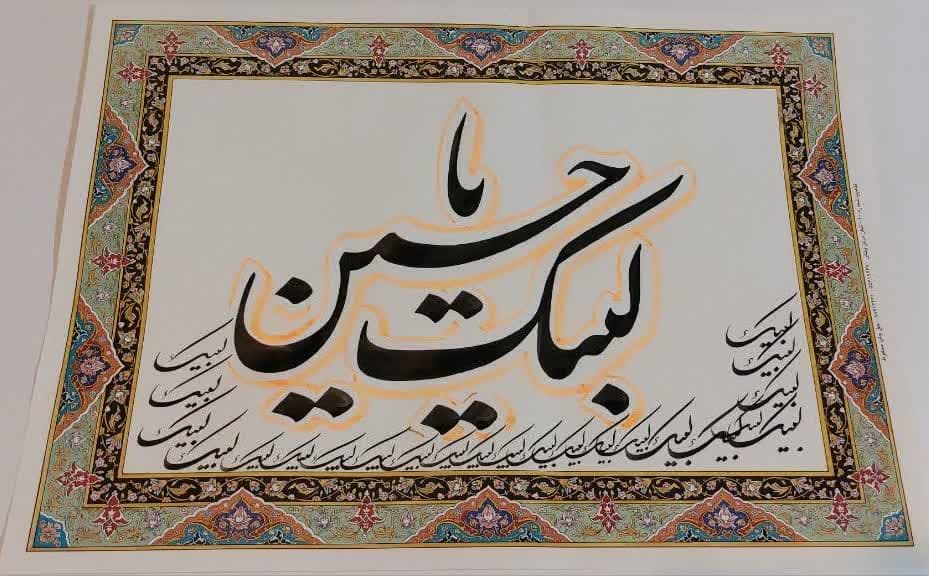 لبیک یا حسین
لبیک
لبیک
لبیک
لبیک لبیک لبیک لبیک لبیک لبیک لبیک لبیک لبیک لبیک لبیک لبیک لبیک لبیک لبیک لبیک لبیک
لبیک
لبیک
لبیک